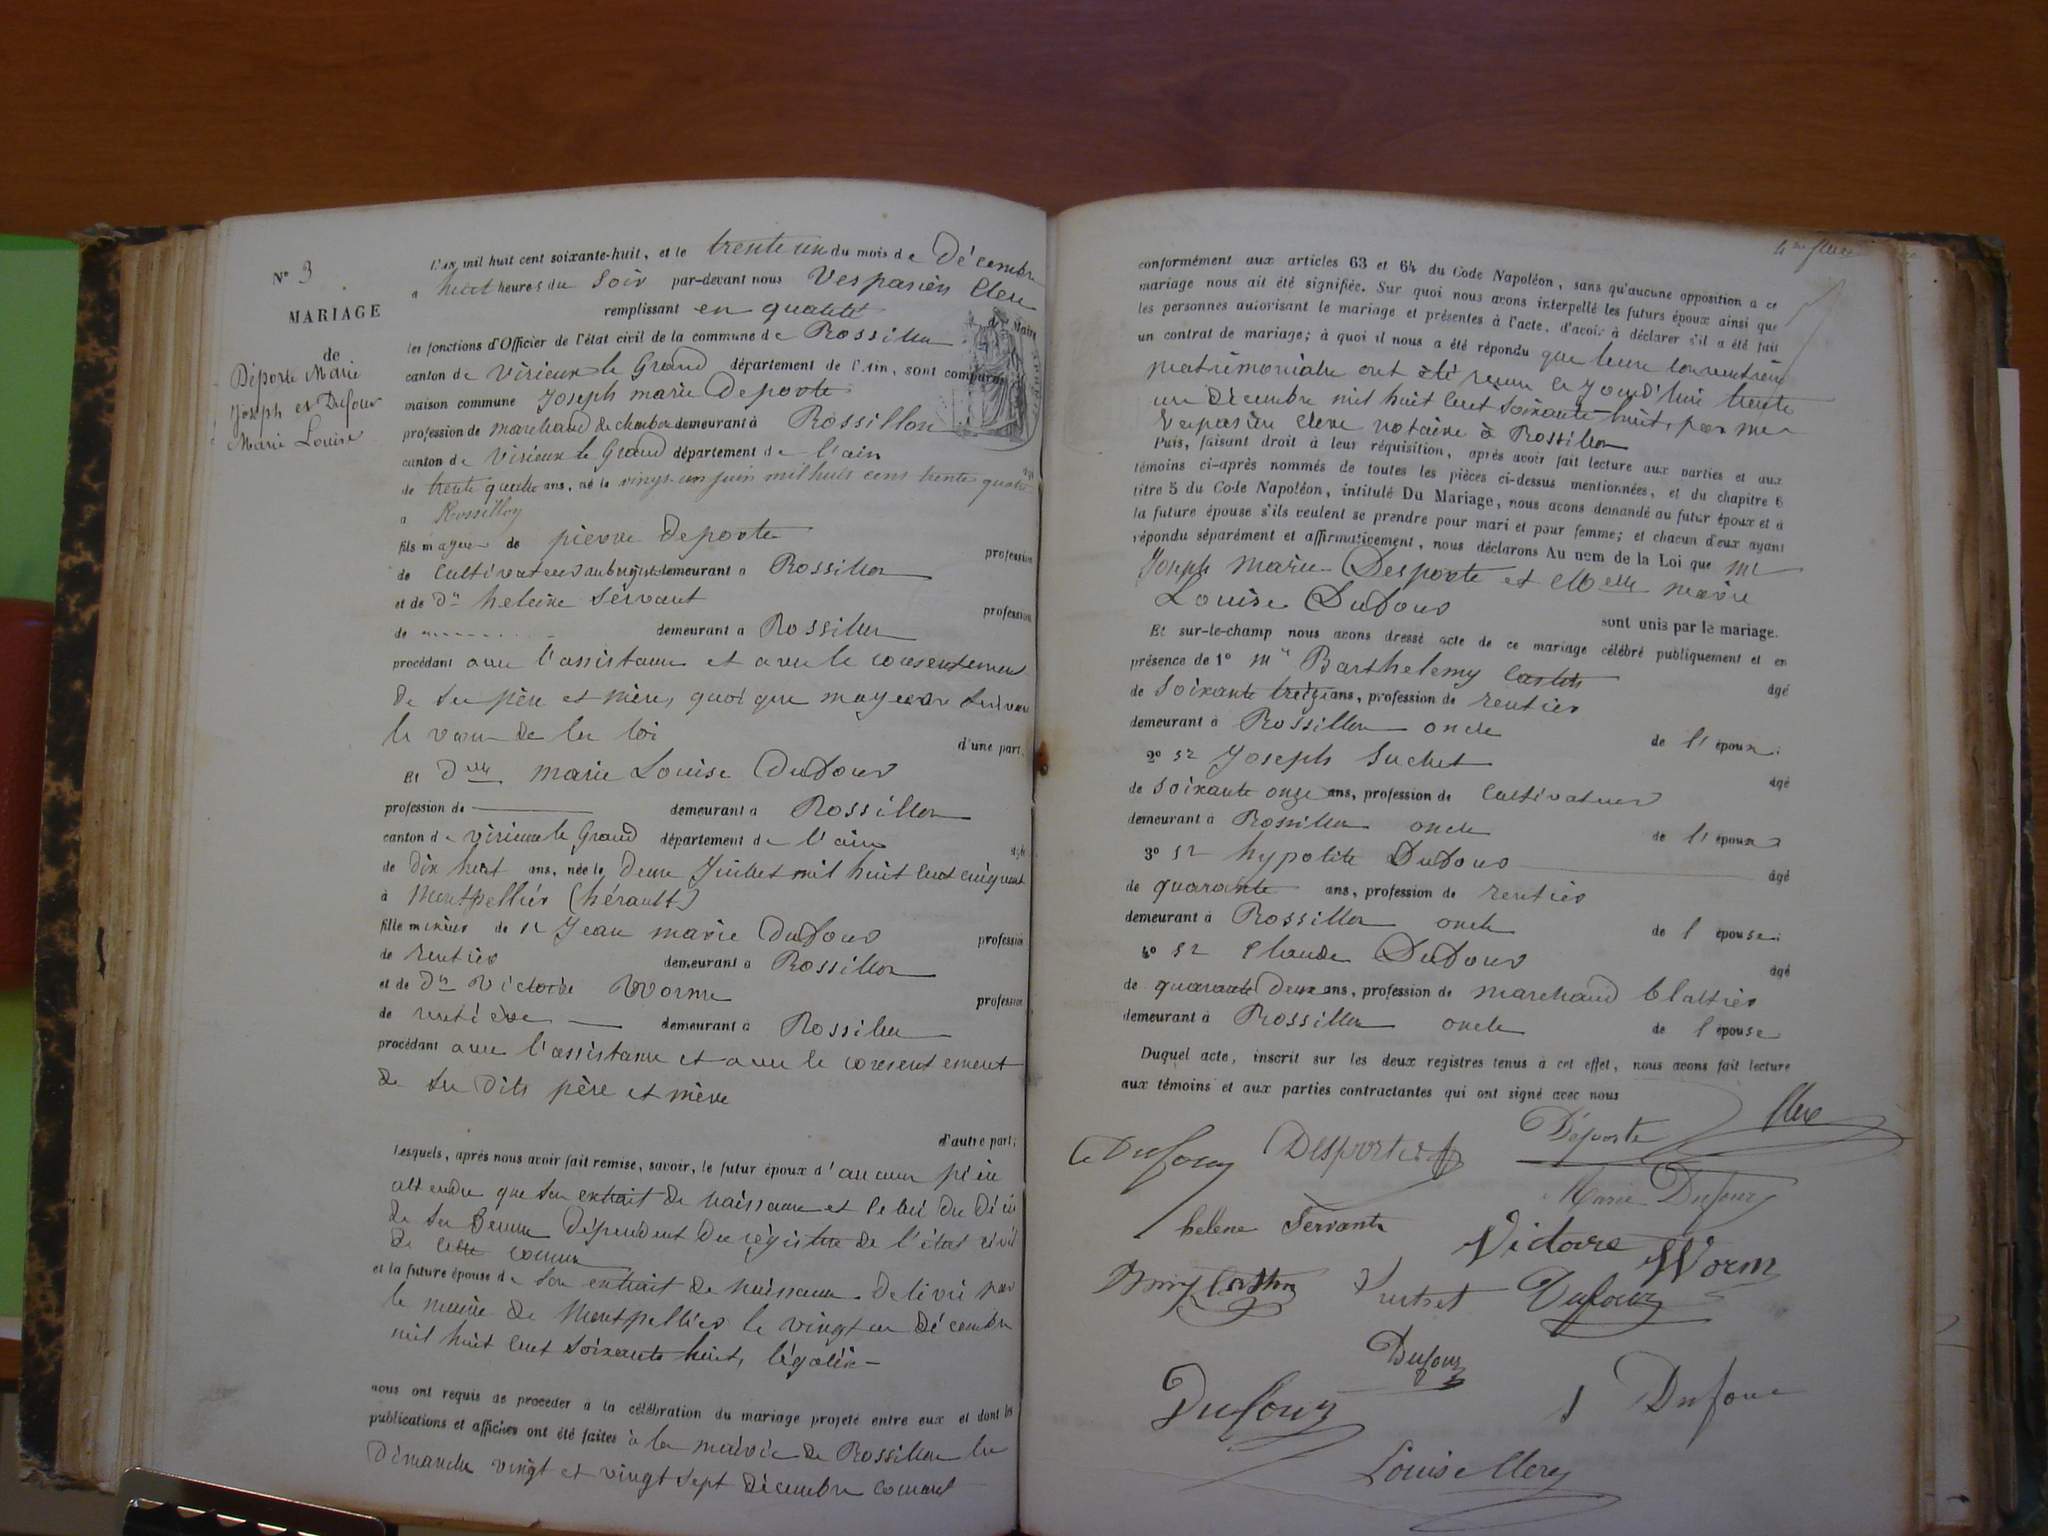 N° 3
MARIAGE
de
Déporte Marie
Joseph et Dufour
Marie Louise
L'an mil huit cent soixante-huit, et le trente un du mois de Décembre
a huit heures du Soir par-devant nous Vespasien Clerc
remplissant en qualité de Maire
les fonctions d'Officier de l'état civil de la commune de Rossillon
canton de virieux le Grand département de l'Ain, sont comparus
maison commune Joseph marie Deporte
profession de marchand de demeurant à Rossillon
canton de virieux le Grand département de l'ain
de trente quatre ans, né le vingt-un juin mil huit cent trente quatre
a Rossillon
fils mageur de pierre Deporte
profession
de Cultivateur aubergiste demeurant a Rossillon
et de De heleine Servant
profession
de demeurant a Rossillon
procédant avec l'assistance et avec le consentement
de ses père et mère, quoi que mageur suivant
le vœu de la loi
d'une part;
Et Delle marie Louise Dufour
profession de demeurant a Rossillon
canton de virieux le Grand département de l'ain
agée
de dix huit ans, née le Deux Juillet mil huit cent cinquante
à Montpellier (hérault)
fille mineur de sr Jean marie Dufour profession
de rentier demeurant a Rossillon
et de De Victoire Worme profession
de rentière demeurant a Rossillon
procédant avec l'assistance et avec le consentement
de ses dits père et mère
d'autre part;
Lesquels, après nous avoir fait remise, savoir, le futur époux d'aucune pièce
attendu que son extrait de naissance et celui du décès
de sa femme dépendent des registre de l'état civil
de cette commune
et la future épouse de son extrait de naissance. Délivré par
le maire de Montpellier le vingt un Décembre
mil huit cent soixante huit, légalisé
nous ont requis de procéder à la célébration du mariage projeté entre eux et dont les
publications et affiches ont été faites à la mairie de Rossillon les
Dimanche vingt et vingt sept décembre courant
4me
conformément aux articles 63 et 64 du Code Napoléon, sans qu'aucune opposition a ce
mariage nous ait été signifiée. Sur quoi nous avons interpellé les futurs époux ainsi que
les personnes autorisant le mariage et présentes à l'acte, d'avoir à déclarer s'il a été fait
un contrat de mariage; à quoi il nous a été répondu que leurs conventions
matrimoniales ont été reçues ce jourd'hui trente
un Décembre mil huit cent soixante-huit, par me
Vespasien Clerc notaire à Rossillon
Puis, faisant droit à leur réquisition, après avoir fait lecture aux parties et aux
témoins ci-après nommés de toutes les pièces ci-dessus mentionnées, et du chapitre 6
titre 5 du Code Napoléon, intitulé Du Mariage, nous avons demandé au futur époux et à
la future épouse s'ils veulent se prendre pour mari et pour femme; et chacun d'eux ayant
répondu séparément et affirmativement, nous déclarons Au nom de la Loi que Mr
Joseph marie Desporte et Melle marie
Louise Dufour
sont unis par le mariage.
Et sur-le-champ nous avons dressé acte de ce mariage célébré publiquement et en
présence de 1° Mr Barthelemy
âgé
de Soixante treize ans, profession de rentier
demeurant à Rossillon oncle de l'époux;
2° sr Joseph Suchet
âgé
de Soixante onze ans, profession de Cultivateur
demeurant à Rossillon oncle de l'époux
3° sr hypolite Dufour
âgé
de quarante ans, profession de rentier
demeurant à Rossillon oncle de l'épouse;
4° sr Claude Dufour
âgé
de quarante deux ans, profession de marchand blattier
demeurant à Rossillon oncle de l'épouse
Duquel acte, inscrit sur les deux registres tenus à cet effet, nous avons fait lecture
aux témoins et aux parties contractantes qui ont signé avec nous
Clerc
Dufour Desporte Déporte
Marie Dufour
helene Servante
Victoire Worm
Dufour
Dufour
Dufour J Dufour
Louise Clerc